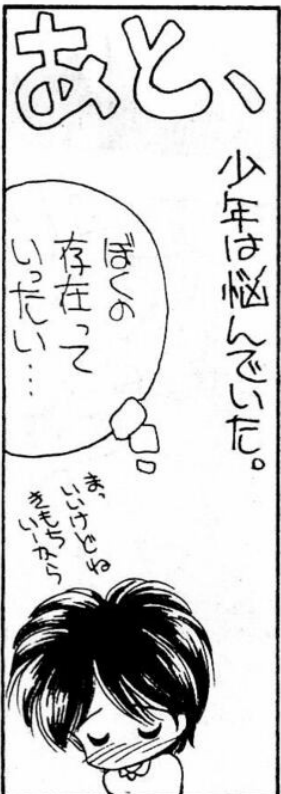 あと、
少年は悩んでいた。
ぼくの
存在って
いったい…
まっ
いいけどね
きもち
いーから